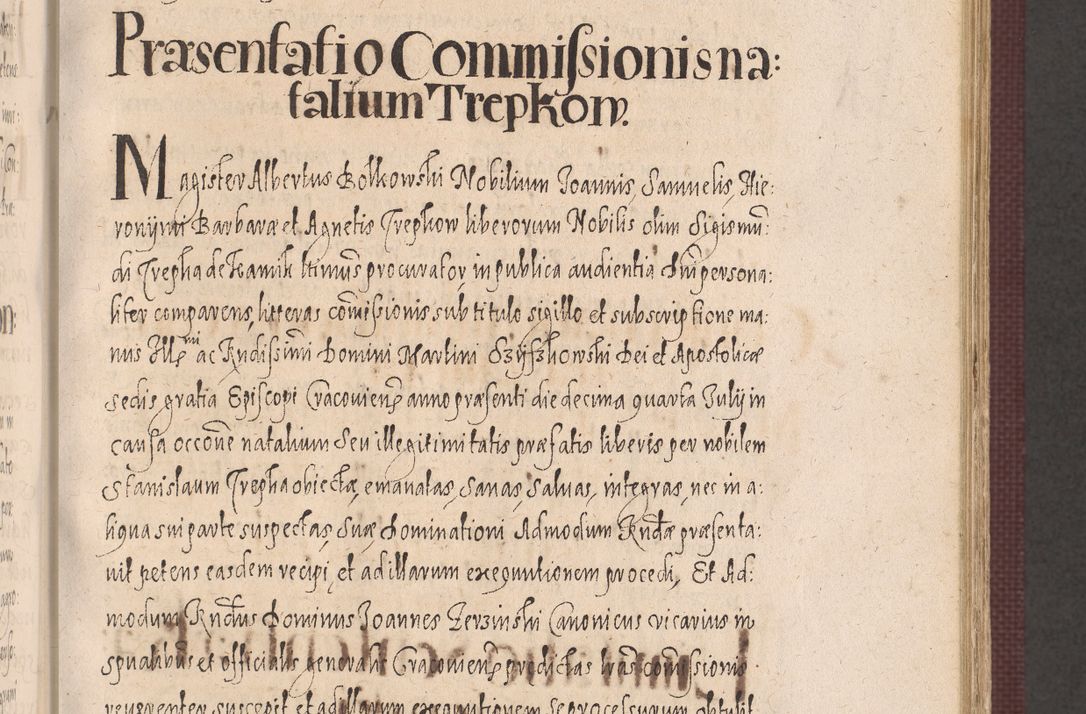 Præsentatio Commissionis na:
talium Trepkow.
Magister Albertus Bolkowski Nobilium Joannis, Samuelis, Hie:
ronijmi Barbaræ et Agnetis Trepkow liberorum Nobilis olim Sigismū:
di Trepka de Kamik ltimus procurator, in publica audientia dum persona:
liter comparens, litteras cōmissionis sub titulo sigillo et subscriptione ma:
nus Illmi ac Rndissimi Domini Martini Szyszkowski Dei et Apostolicæ
sedis gratia Episcopi Cracovien anno præsenti die decima quarta Julij in
causa occōne natalium seu illegitimitatis præfatis liberis per nobilem
Stanislaum Trepka obiectæ, emanatas, sanas, salvas, integras, nec in a:
liqua sui parte suspectas, suæ Dominationi Admodum Rndæ præsenta:
vit petens easdem recipi, et ad illarum exequutionem procedi, Et Ad:
modum Rndus Dominus Joannes Zerzinski Canonicus vicarius in
spualibus et officialis generalis Cracovien prædictas lras comissionis
reverenter suscepit et ad illarum exequutionem se processurum obtulit